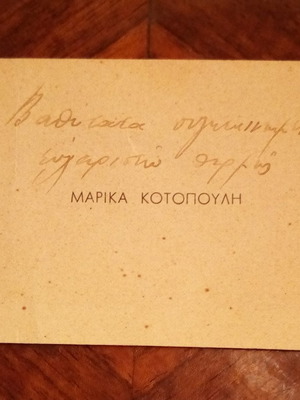 Βαθύτατα συγκινημένη
ευχαριστώ θερμώς
ΜΑΡΙΚΑ ΚΟΤΟΠΟΥΛΗ